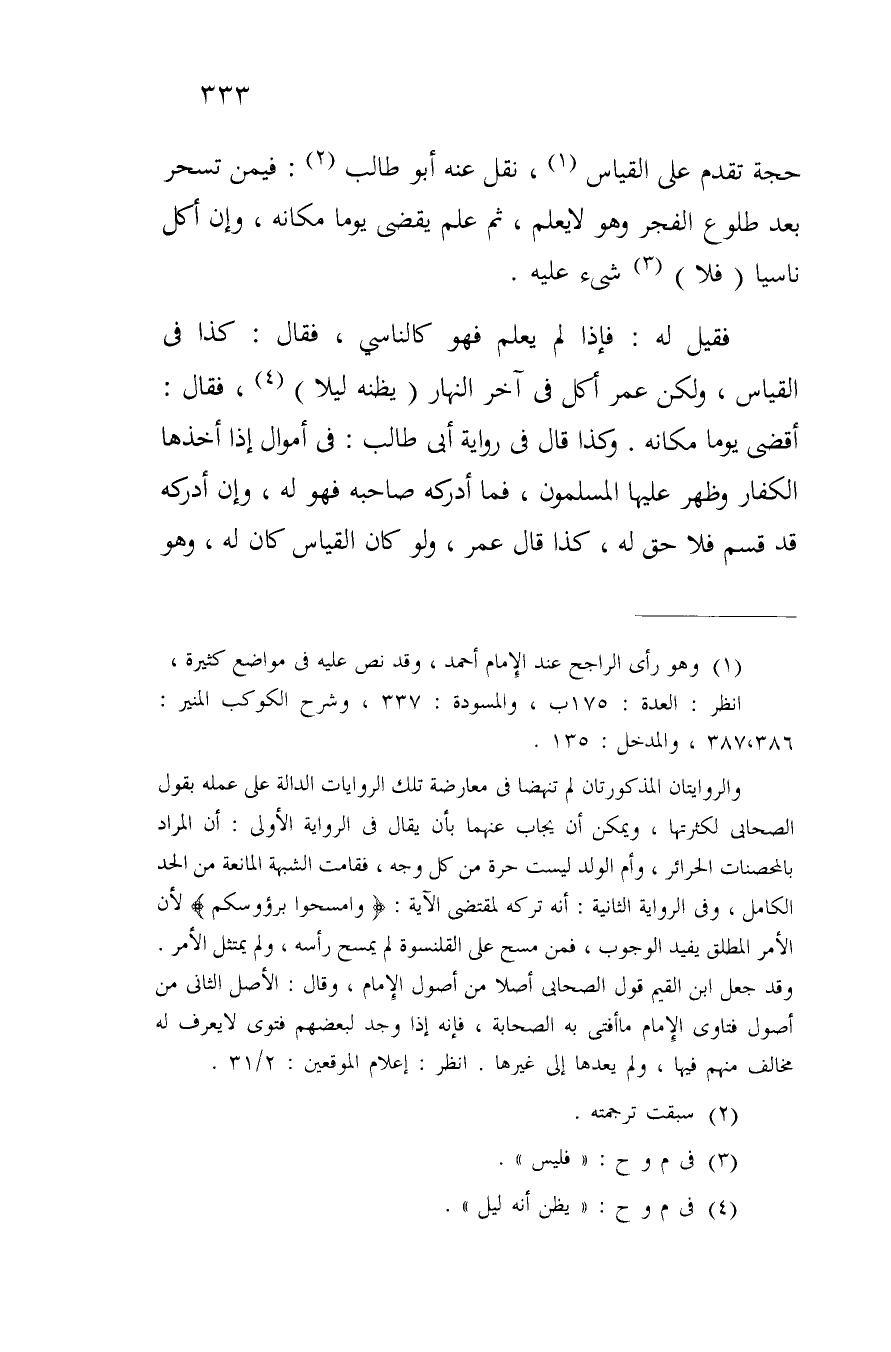 ٣٣٣
حجة تقدم على القياس (١) ، نقل عنه أبو طالب (٢) : فيمن تسحر
بعد طلوع الفجر وهو لايعلم ، ثم علم يقضى يوما مكانه ، وإن أكل
ناسيا ( فلا ) (٣) شىء عليه .
فقيل له : فإذا لم يعلم فهو كالناسي ، فقال : كذا فى
القياس ، ولكن عمر أكل فى آخر النهار ( يظنه ليلا ) (٤) ، فقال :
أقضى يوما مكانه . وكذا قال فى رواية أبى طالب : فى أموال إذا أخذها
الكفار وظهر عليها المسلمون ، فما أدركه صاحبه فهو له ، وإن أدركه
قد قسم فلا حق له ، كذا قال عمر ، ولو كان القياس كان له ، وهو
(١) وهو رأى الراجح عند الإمام أحمد ، وقد نص عليه فى مواضع كثيرة ،
انظر : العدة : ١٧٥ب ، والمسودة : ٣٣٧ ، وشرح الكوكب المنير :
٣٨٧،٣٨٦ ، والمدخل : ١٣٥ .
والروايتان المذكورتان لم تنهضا فى معارضة تلك الروايات الدالة على عمله بقول
الصحابى لكثرتها ، ويمكن أن يجاب عنهما بأن يقال فى الرواية الأولى : أن المراد
بالمحصنات الحرائر ، وأم الولد ليست حرة من كل وجه ، فقامت الشبهة المانعة من الحد
الكامل ، وفى الرواية الثانية : أنه تركه لمقتضى الآية : ﴿ وامسحوا برؤوسكم ﴾ لأن
الأمر المطلق يفيد الوجوب ، فمن مسح على القلنسوة لم يمسح رأسه ، ولم يمتثل الأمر .
وقد جعل ابن القيم قول الصحابى أصلا من أصول الإمام ، وقال : الأصل الثانى من
أصول فتاوى الإمام ماأفتى به الصحابة ، فإنه إذا وجد لبعضهم فتوى لايعرف له
مخالف منهم فيها ، ولم يعدها إلى غيرها . انظر : إعلام الموقعين : ٣١/٢ .
(٢) سبقت ترجمته .
(٣) فى م و ح : « فليس » .
(٤) فى م و ح : « يظن أنه ليل » .